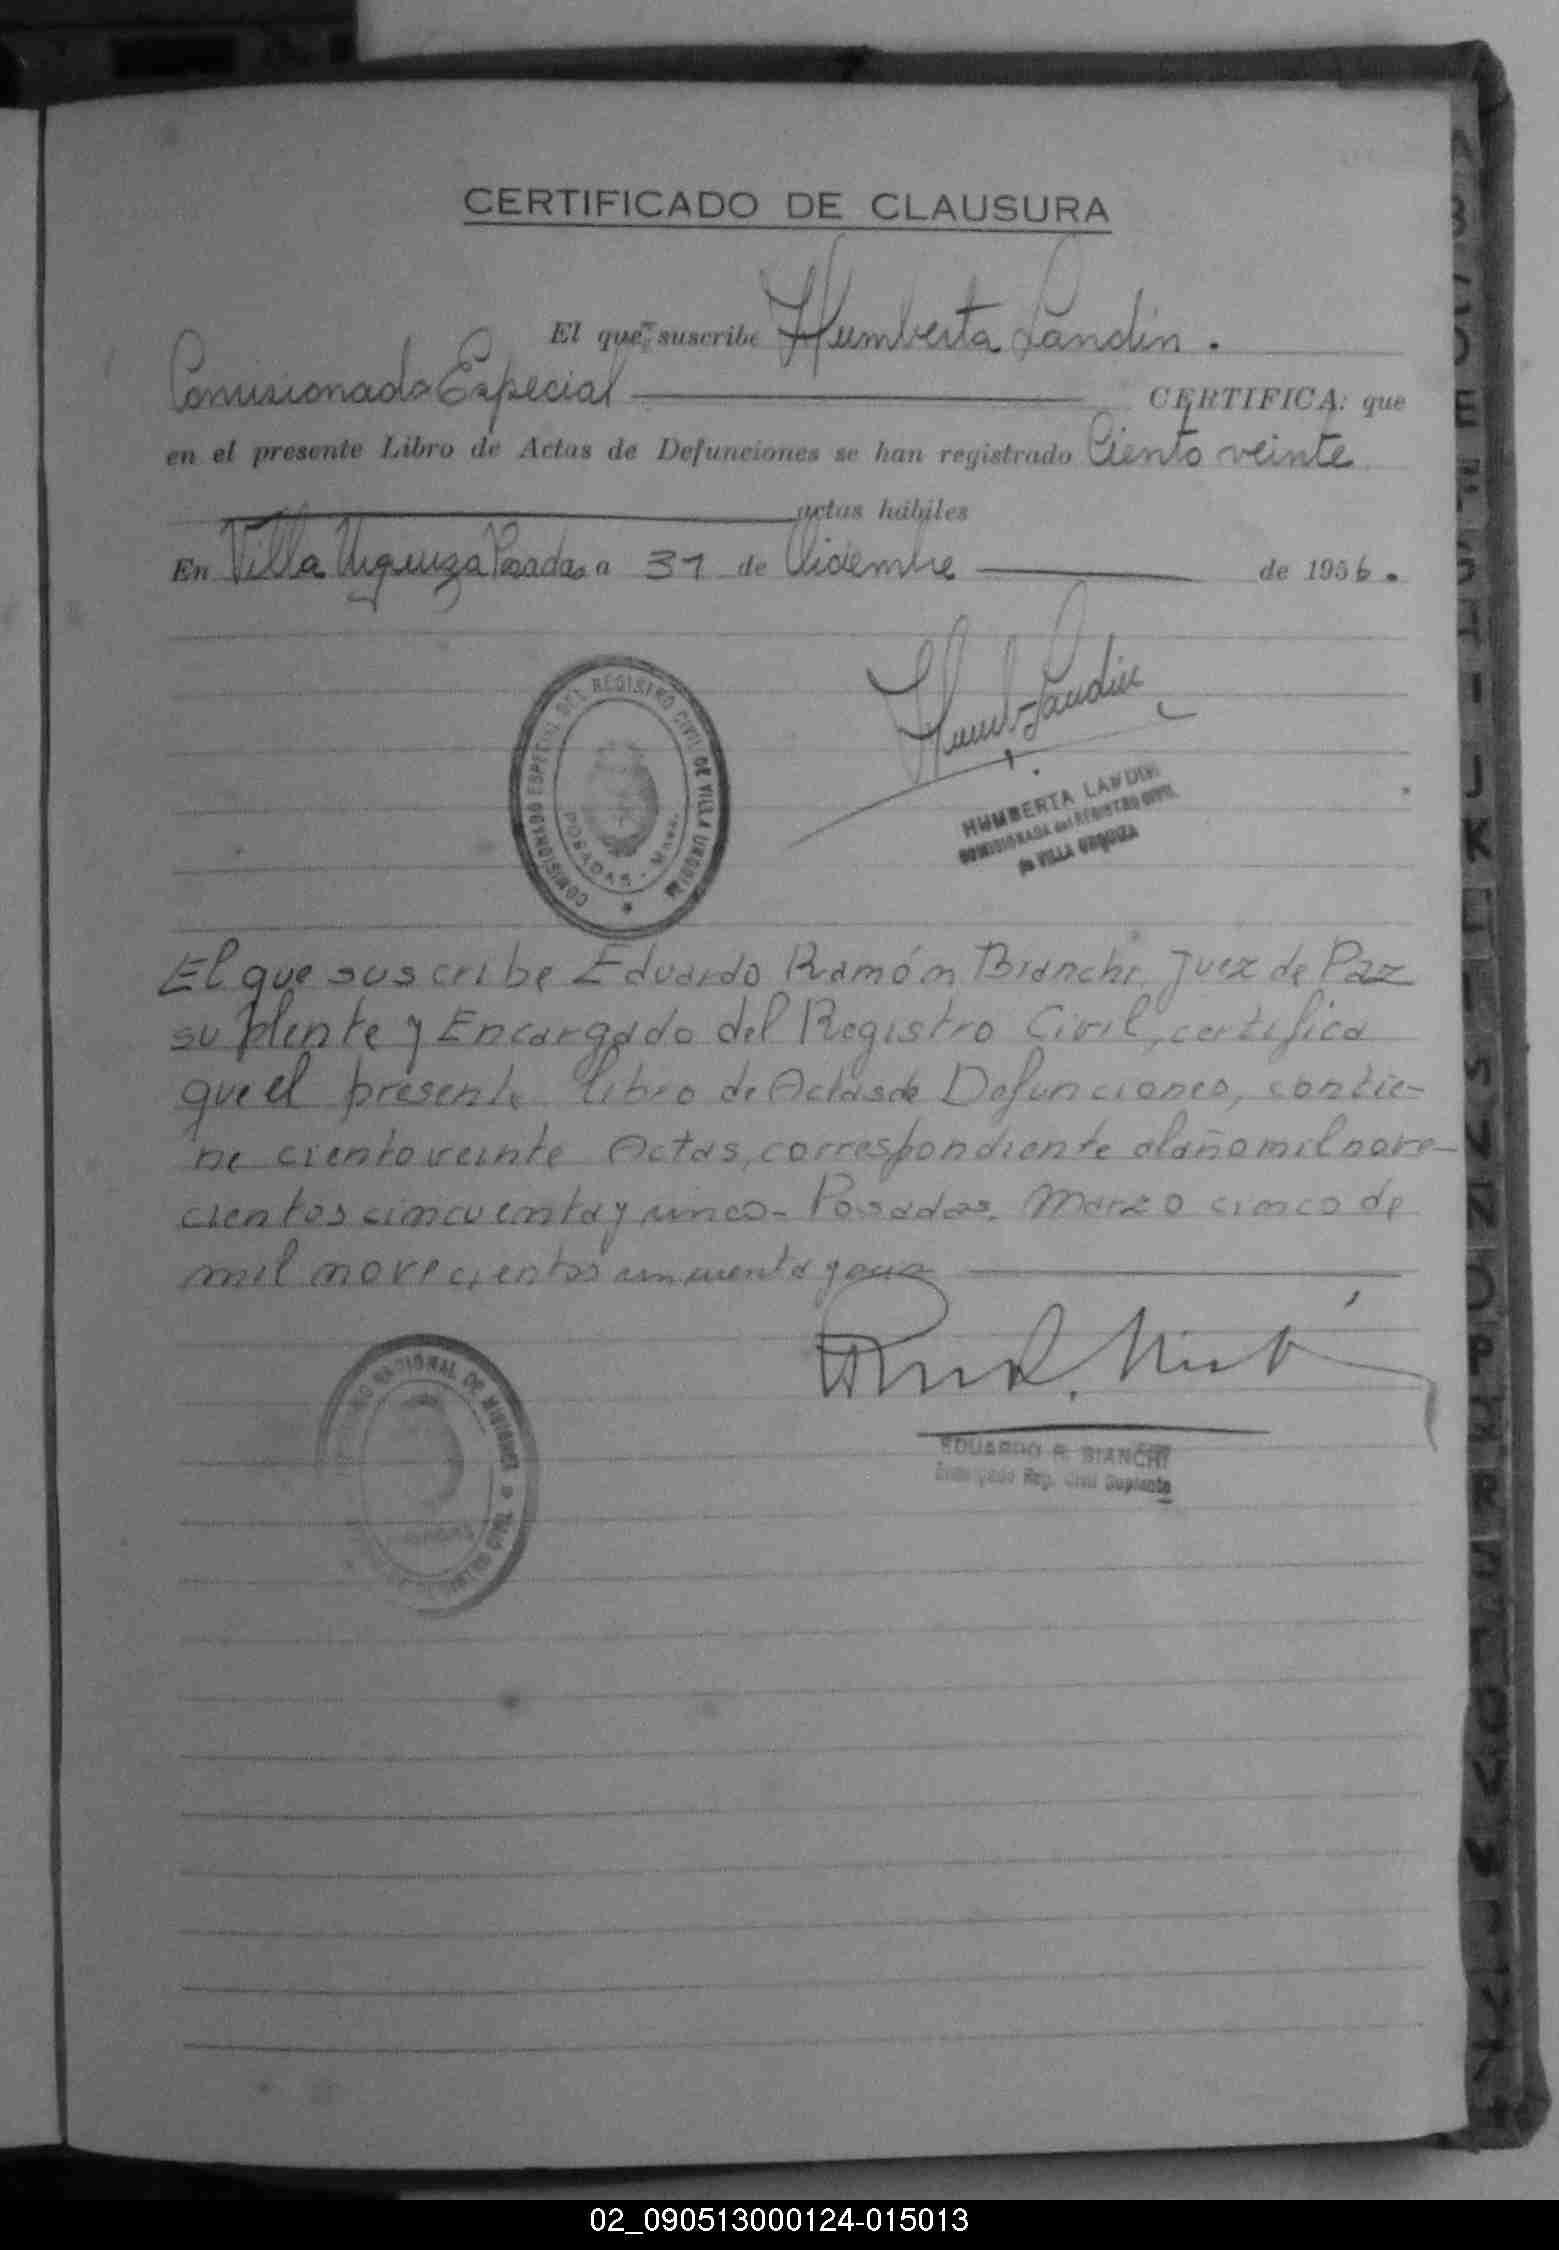 CERTIFICADO DE CLAUSURA
El que suscribe Humberta Landin.
Comisionada Especial CERTIFICA: que
en el presente Libro de Actas de Defunciones se han registrado Ciento veinte
actas hábiles
En Villa Urquiza Posadas a 31 de Diciembre de 1956.
COMISIONADO ESPECIAL DEL REGISTRO CIVIL DE VILLA URQUIZA
POSADAS - Mnes.
HUMBERTA LANDIN
COMISIONADA del REGISTRO CIVIL
de VILLA URQUIZA
El que suscribe Eduardo Ramón Bianchi, Juez de Paz
suplente y Encargado del Registro Civil, certifica
que el presente libro de Actas de Defunciones, contie-
ne ciento veinte Actas, correspondiente al año mil nove-
cientos cincuenta y cinco- Posadas, Marzo cinco de
mil novecientos cincuenta y
NACIONAL DE MISIONES
REGISTRO CIVIL
EDUARDO R. BIANCHI
Encargado Reg. Civil Suplente
A B C D E F G H I J K L L M N Ñ O P Q R S T U V W X Y Z
02_090513000124-015013